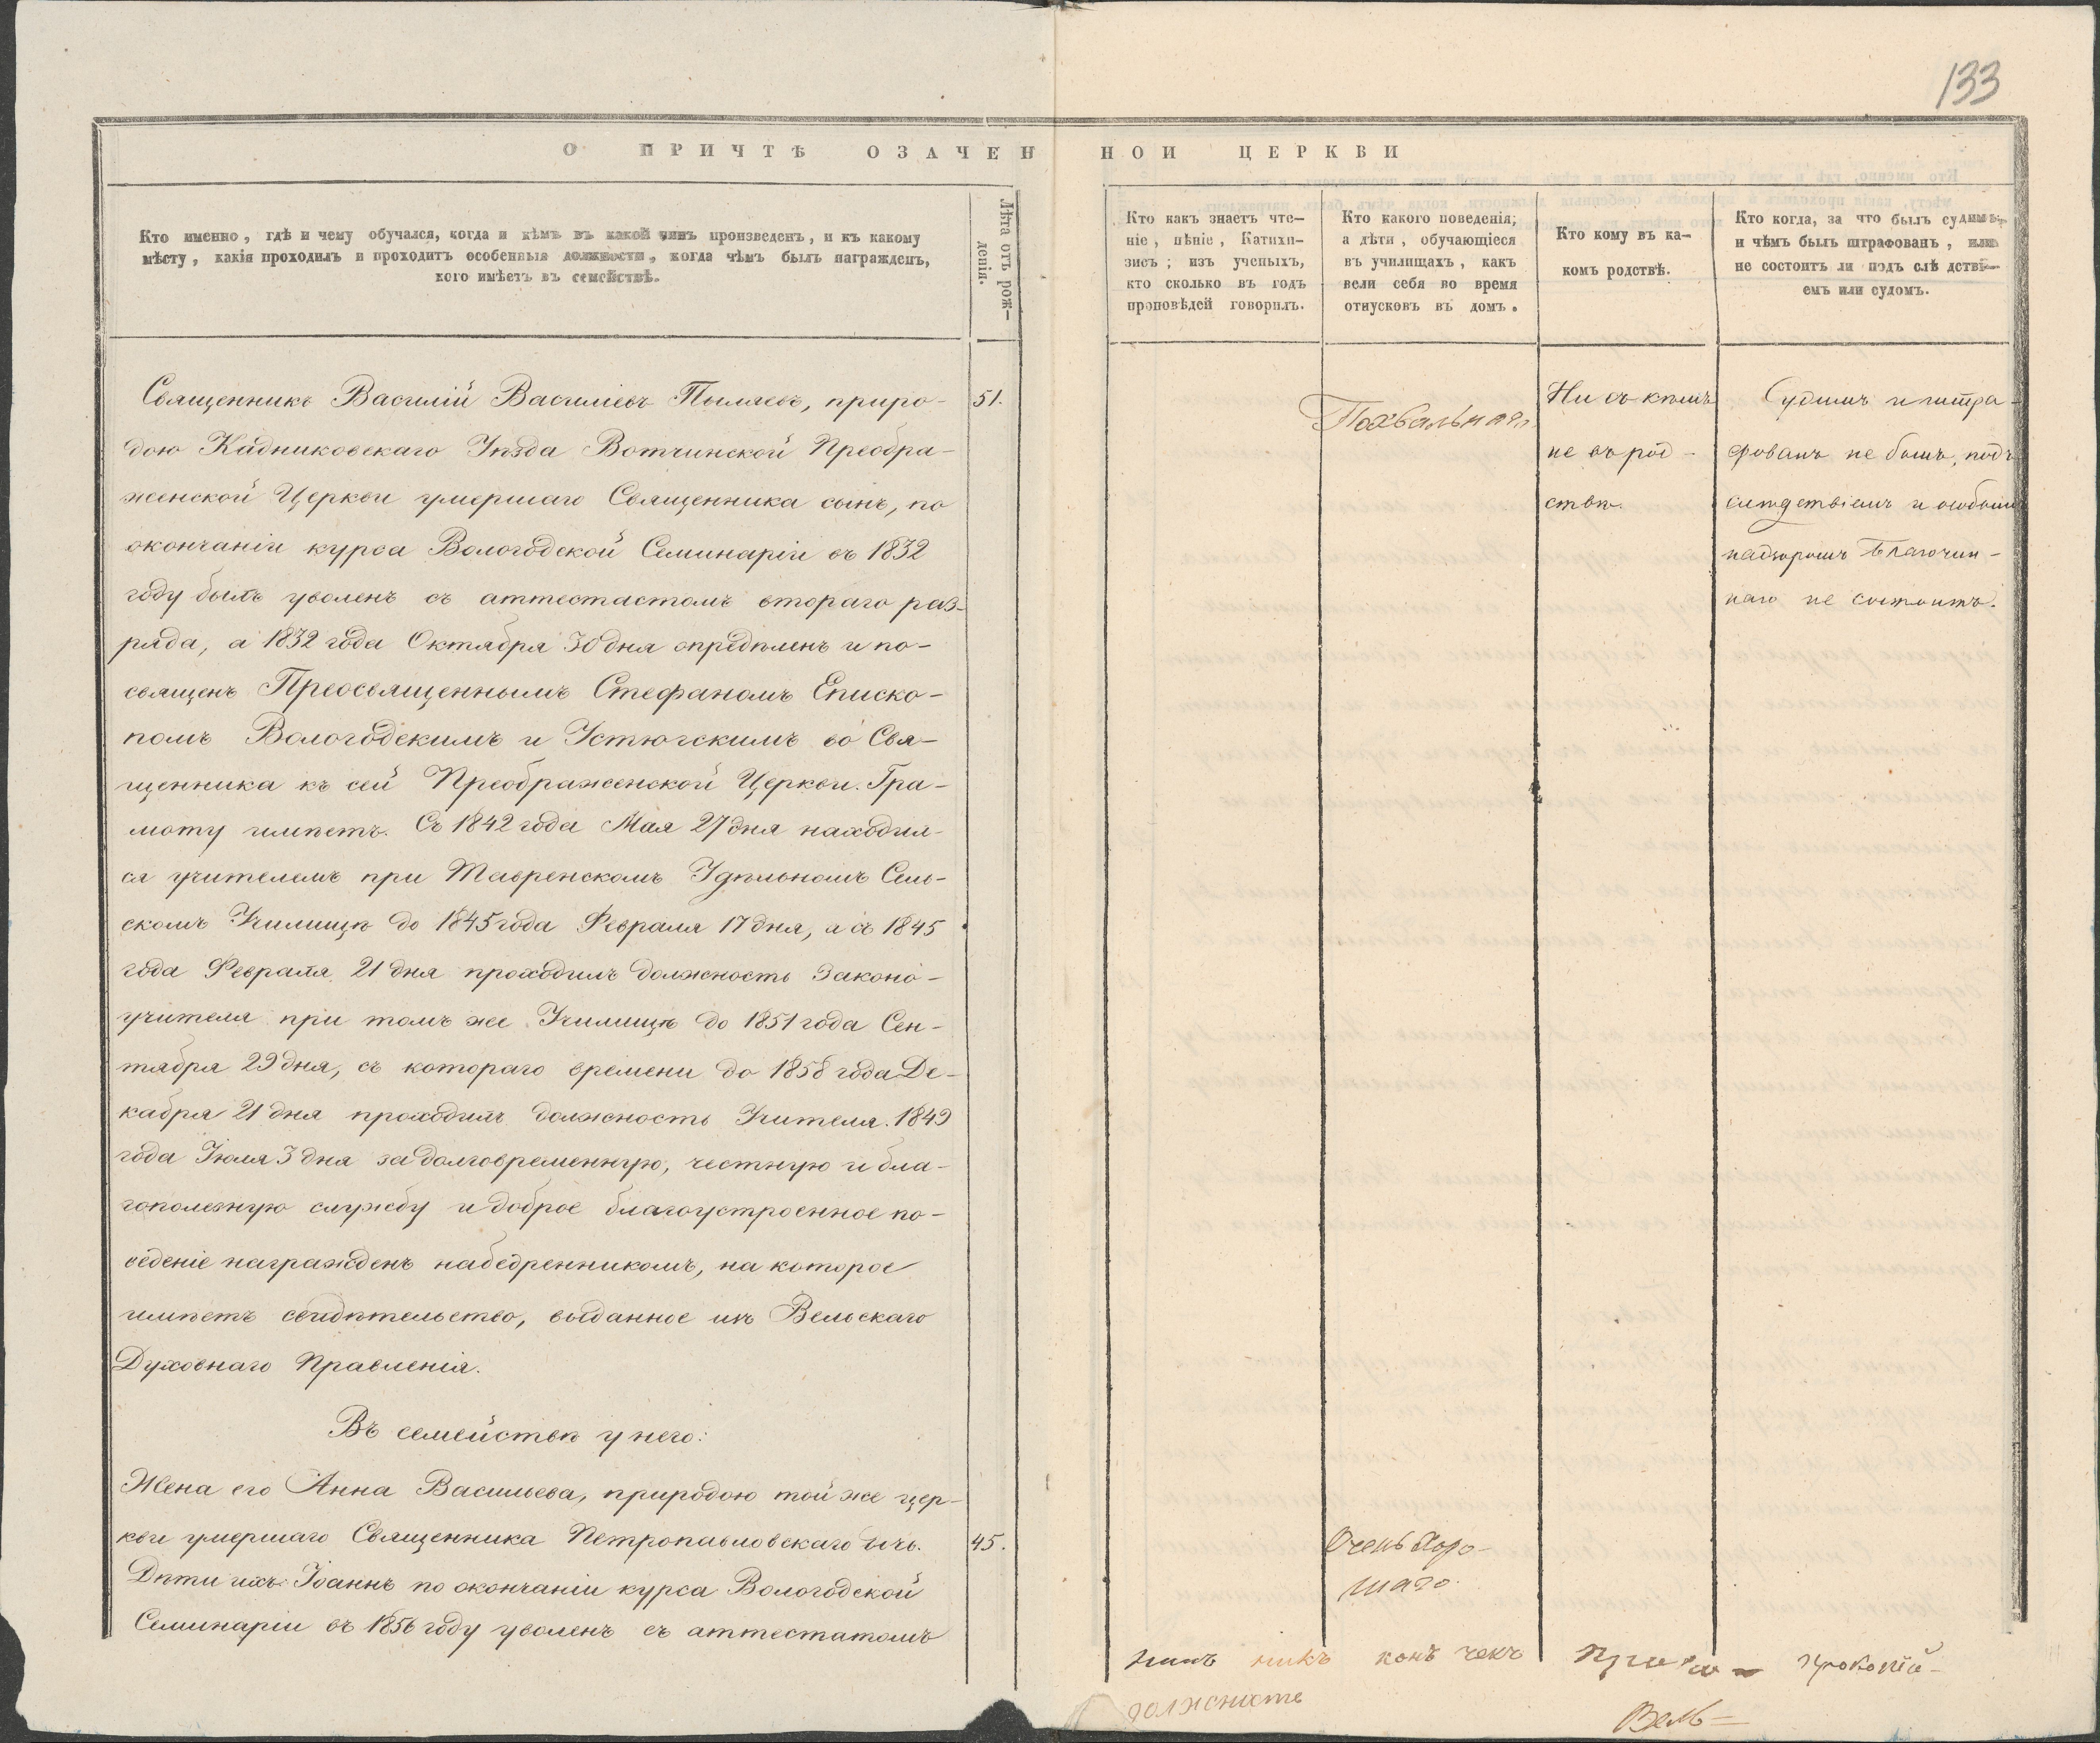 133
О ПРИЧТѢ ОЗАЧЕННОИ ЦЕРКВИ
Кто именно, гдѣ и чему обучался, когда и кѣмъ въ какой чинъ произведенъ, и къ какому
мѣсту, какія проходилъ и проходитъ особенныя должности, когда чѣмъ былъ награжденъ,
кого имѣетъ въ семействѣ.
Лѣта отъ рож-
денія.
Кто какъ знаетъ чте-
ніе, пѣніе, Катихи-
зисъ; изъ ученыхъ,
кто сколько въ годъ
проповѣдей говорилъ.
Кто какого поведенія;
а дѣти, обучающіеся
въ училищахъ, какъ
вели себя во время
отпусковъ въ домъ.
Кто кому въ ка-
комъ родствѣ.
Кто когда, за что былъ судимъ
и чѣмъ былъ штрафованъ, или
не состоитъ ли подъ слѣдстві-
емъ или судомъ.
Священникъ Василій Василіевъ Пыляевъ, приро-
дою Кадниковскаго Уѣзда Вотчинской Преобра-
женской Церкви умершаго Священника сынъ, по
окончаніи курса Вологодской Семинаріи въ 1832
году былъ уволенъ съ аттестастомъ втораго раз-
ряда, а 1832 года Октября 30 дня опредѣленъ и по-
священъ Преосвященнымъ Стефаномъ Еписко-
помъ Вологодскимъ и Устюгскимъ во Свя-
щенника къ сей Преображенской Церкви. Гра-
моту имѣетъ. Съ 1842 года Мая 27 дня находил-
ся учителемъ при Тавренскомъ Удѣльномъ Сель-
скомъ Училищѣ до 1845 года Февраля 17 дня, а съ 1845
года Февраля 21 дня проходилъ должность Законо-
учителя при томъ же Училищѣ до 1851 года Сен-
тября 29 дня, съ котораго времени до 1858 года Де-
кабря 21 дня проходилъ должность Учителя. 1849
года Іюля 3 дня за долговременную, честную и бла-
гополезную службу и доброе благоустроенное по-
веденіе награжденъ набедренникомъ, на которое
имѣетъ свидѣтельство, выданное изъ Вельскаго
Духовнаго Правленія.
51.
Похвальнаго
Ни съ кѣмъ
не въ род-
ствѣ.
Судимъ и штра-
фованъ не былъ, подъ
слѣдствіемъ и особымъ
надзоромъ Благочин-
наго не состоитъ.
Въ семействѣ у него:
Жена его Анна Васильева, природою той же цер-
кви умершаго Священника Петропавловскаго дочь.
45.
Очень хоро-
шаго.
Дѣти ихъ: Іоаннъ по окончаніи курса Вологодской
Семинаріи въ 1856 году уволенъ съ аттестатомъ
должность
Вель-